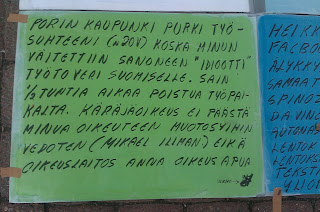 PORIN KAUPUNKI PURKI TYÖ-
SUHTEENI (n.20V) KOSKA MINUN
VÄITETTIIN SANONEEN "IDIOOTTI"
TYÖTOVERI SUOMISELLE. SAIN
½ TUNTIA AIKAA POISTUA TYÖPAI-
KALTA. KÄRÄJÄOIKEUS EI PÄÄSTÄ
MINUA OIKEUTEEN MUOTOSYIHIN
VEDOTEN (MIKAEL ILLMAN) EIKÄ
OIKEUSLAITOS ANNA OIKEUSAPUA
HEIKK
FACEBOO
ÄLYKKY
SAMAA T
SPINOZ
DA VINC
AUTONAS
LENTUK
LENTOKS
TEKSTA
YLIOM